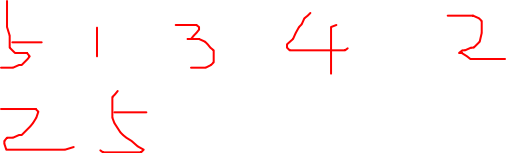 5 1 3 4 2
2 5